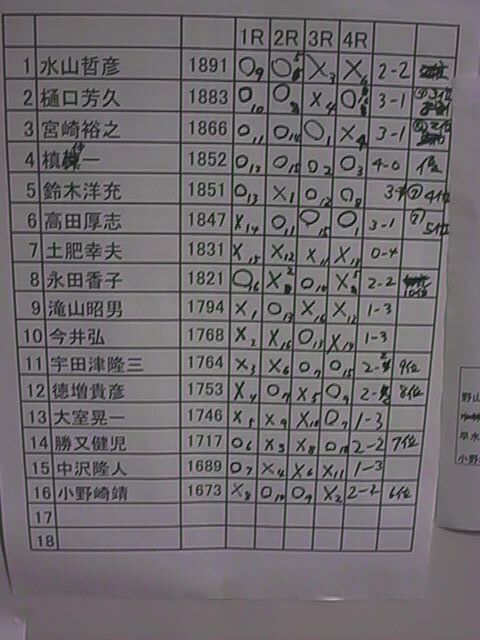 1R 2R 3R 4R
1 水山哲彦 1891 ○9 ○ ×3 × 2-2
2 樋口芳久 1883 ○10 ○8 ×4 ○ 3-1
3 宮崎裕之 1866 ○11 ○14 ○1 ×4 3-1
4 槙 一 1852 ○12 ○15 ○2 ○3 4-0
5 鈴木洋充 1851 ○13 ×1 ○12 ○8 4位
6 高田厚志 1847 ×14 ○11 ○15 ○1 3-1 5位
7 土肥幸夫 1831 ×15 ×12 ×11 ×13 0-4
8 永田香子 1821 ○16 × ○14 × 2-2
9 滝山昭男 1794 ×1 ○13 ×16 ×12 1-3
10 今井弘 1768 ×2 ×16 ○13 ×14 1-3
11 宇田津隆三 1764 ×3 ×6 ○7 ○15 9位
12 徳増貴彦 1753 ×4 ○7 ×5 ○9 8位
13 大室晃一 1746 ×5 ×9 ×10 ○7 1-3
14 勝又健児 1717 ○6 ×3 ×8 ○10 2-2 7位
15 中沢隆人 1689 ○7 ×4 ×6 ×11 1-3
16 小野崎靖 1673 ×8 ○10 ○9 ×2 2-2 6位
17
18
野山
早水
小野